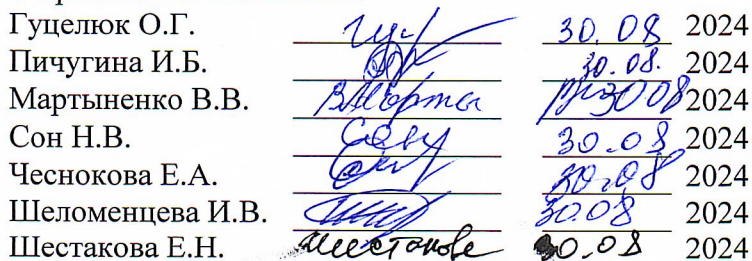 Гуцелюк О.Г. 30.08 2024
Пичугина И.Б. 30.08. 2024
Мартыненко В.В. 30 08 2024
Сон Н.В. 30.08 2024
Чеснокова Е.А. 30.08 2024
Шеломенцева И.В. 30.08 2024
Шестакова Е.Н. 30.08 2024